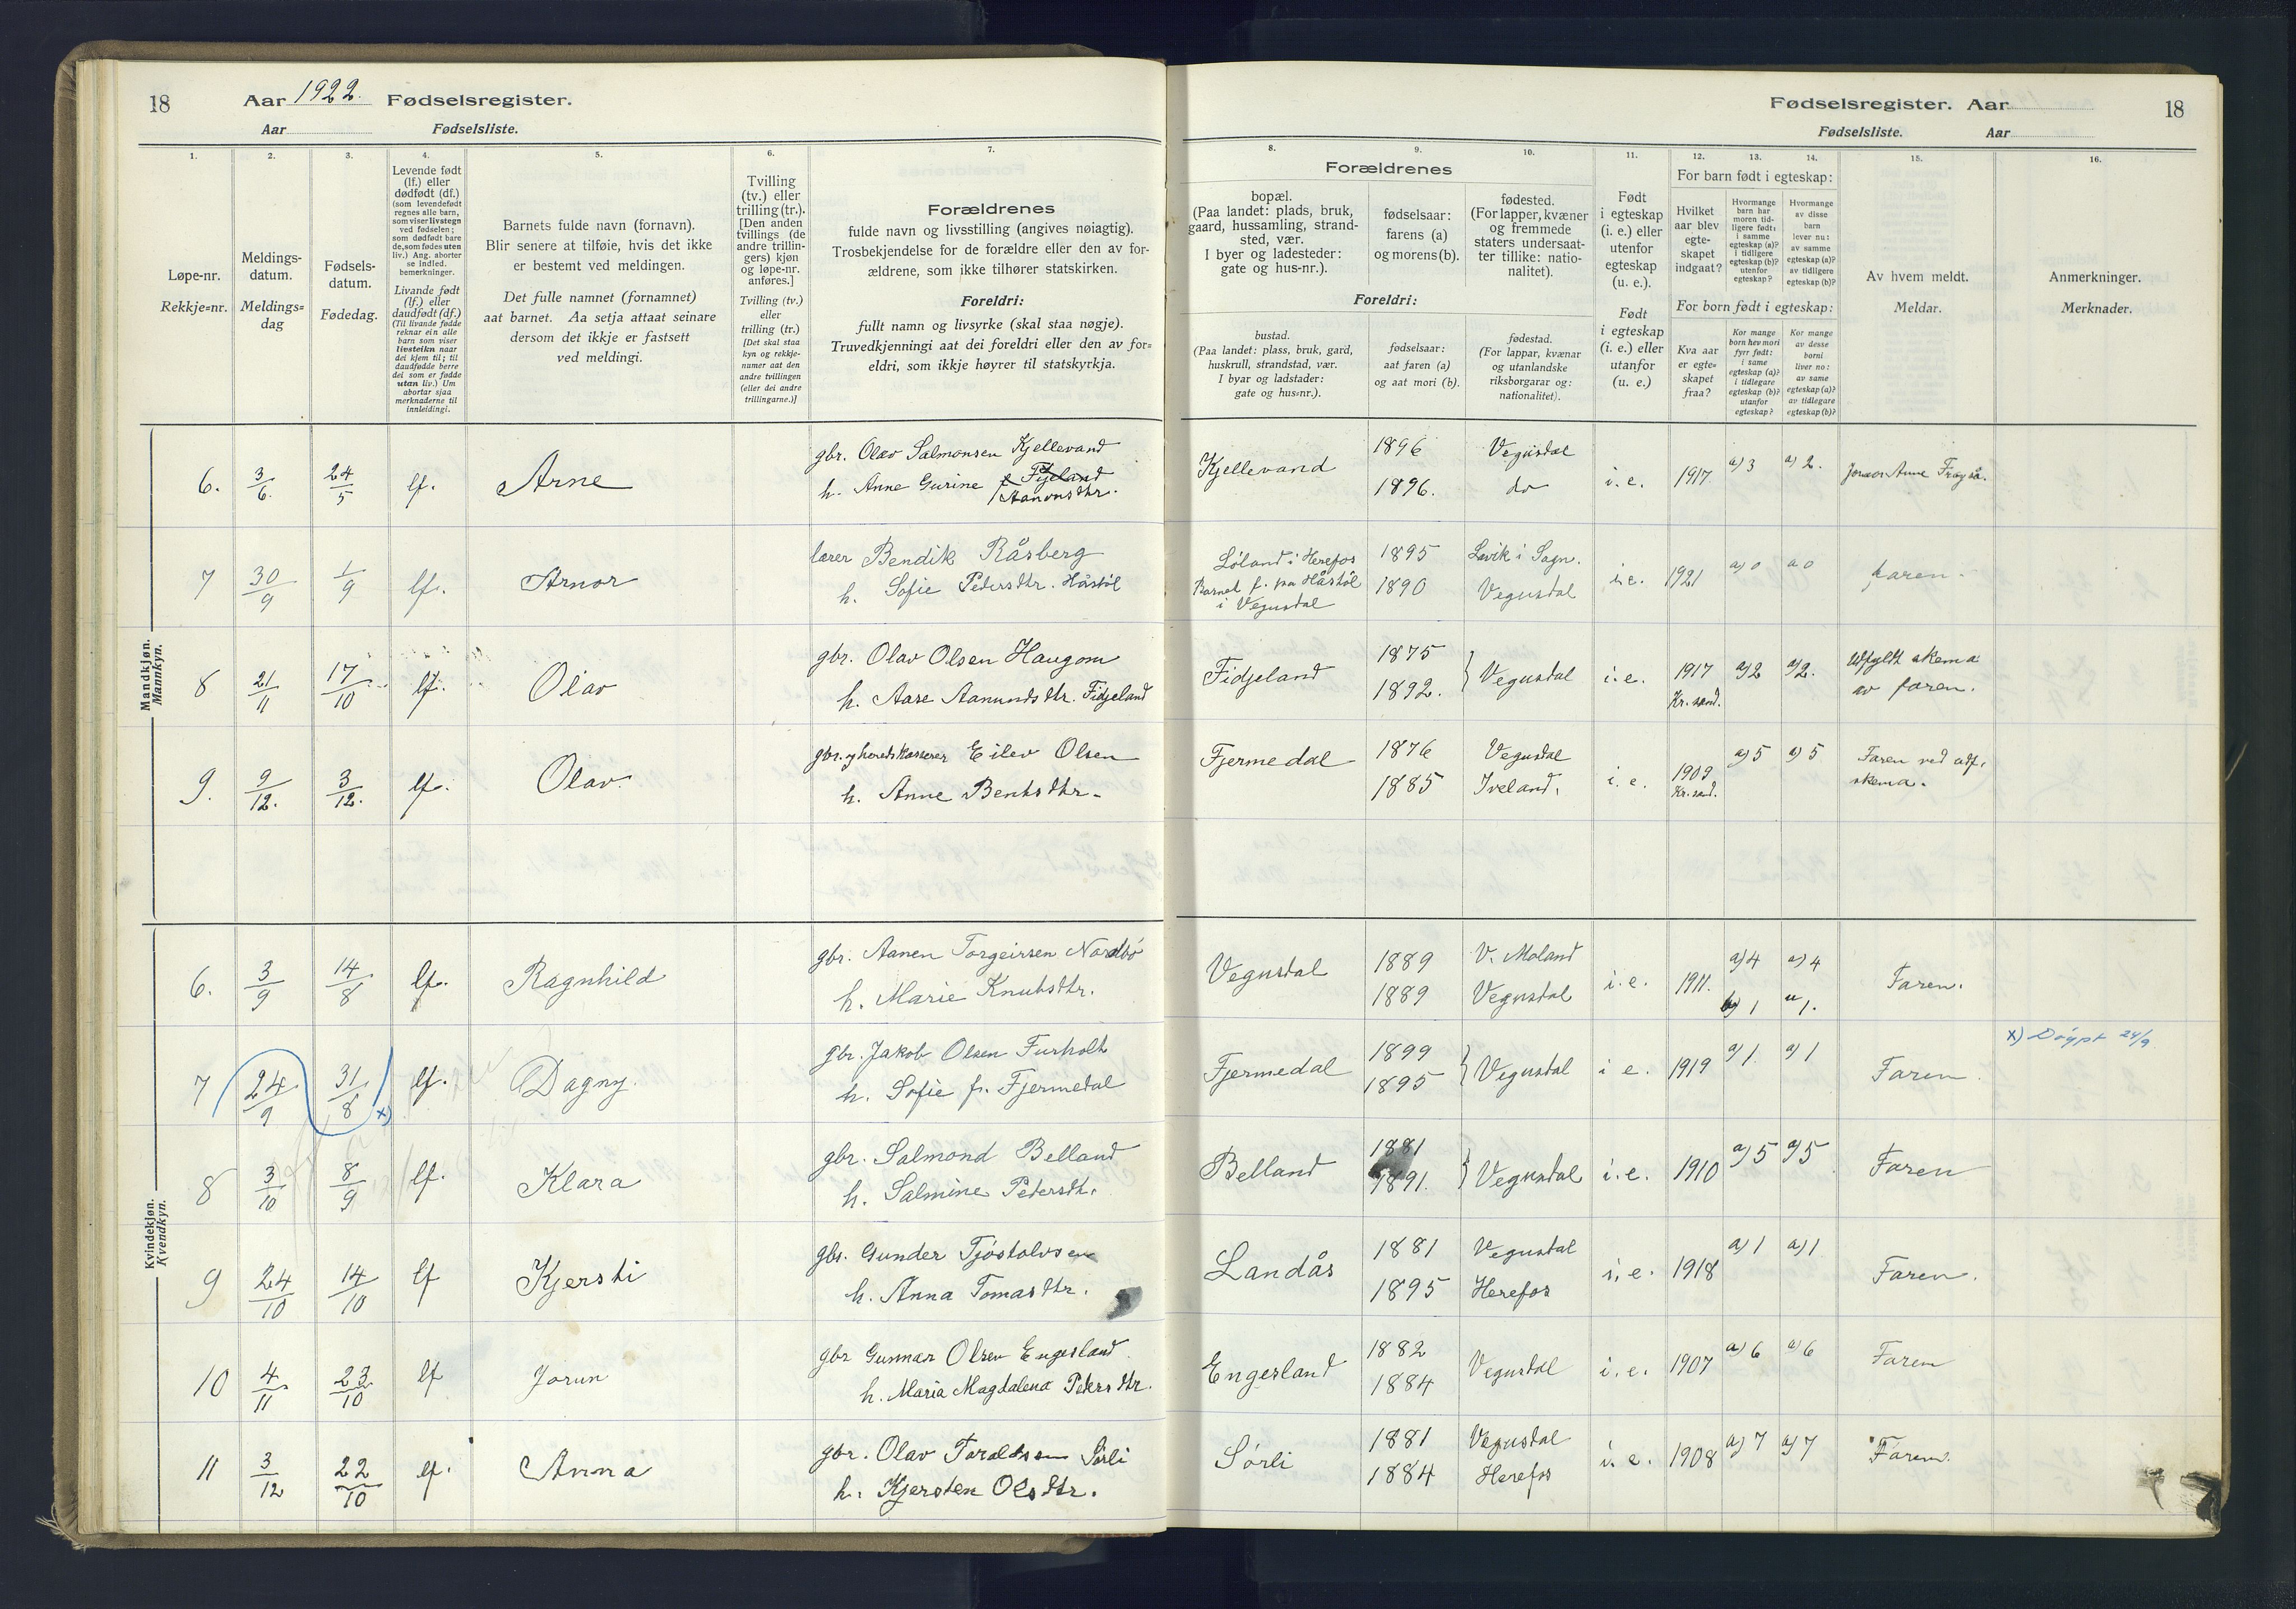 18
Aar 1922. Fødselsregister.
Aar Fødselsliste.
Fødselsregister. Aar 18
Fødselsliste. Aar
1.
2.
3.
4.
5.
6.
7.
8.
9.
10.
11.
12.
13.
14.
15.
16.
Løpe-nr.
Rekkje=nr.
Meldings-
datum.
Meldings=
dag
Fødsels-
datum.
Fødedag.
Levende født
(lf.) eller
dødfødt (df.)
(som levendefødt
regnes alle barn,
som viser livstegn
ved fødselen;
som dødfødt bare
de, som fødes uten
liv.) Ang. aborter
se indled.
bemerkninger.
Livande født
(lf.) eller
daudfødt (df.)
(Til livande fødde
reknar ein alle
barn som viser
livsteikn naar
dei kjem til; til
daudfødde berre
dei som er fødde
utan liv.) Um
abortar sjaa
merknaderne til
innleidingi.
Barnets fulde navn (fornavn).
Blir senere at tilføie, hvis det ikke
er bestemt ved meldingen.
Det fulle namnet (fornamnet)
aat barnet. Aa setja attaat seinare
dersom det ikkje er fastsett
ved meldingi.
Tvilling
(tv.) eller
trilling (tr.).
[Den anden
tvillings (de
andre trillin-
gers) kjøn
og løpe-nr.
anføres.]
Tvilling (tv.)
eller
trilling (tr.)
[Det skal staa
kyn og rekkje-
numer aat den
andre tvillingen
(eller dei andre
trillingarne.)]
Forældrenes
fulde navn og livsstilling (angives nøiagtig).
Trosbekjendelse for de forældre eller den av for-
ældrene, som ikke tilhører statskirken.
Foreldri:
fullt namn og livsyrke (skal staa nøgje).
Truvedkjenningi aat dei foreldri eller den av for=
eldri, som ikkje høyrer til statskyrkja.
Forældrenes
bopæl.
(Paa landet: plads, bruk,
gaard, hussamling, strand-
sted, vær.
I byer og ladesteder:
gate og hus-nr.).
fødselsaar:
farens (a)
og morens (b).
fødested.
(For lapper, kvæner
og fremmede
staters undersaat-
ter tillike: natio-
nalitet).
Foreldri:
bustad.
(Paa landet: plass, bruk, gard,
huskrull, strandstad, vær.
I byar og ladstader:
gate og hus=nr.).
fødselsaar:
aat faren (a)
og aat mori (b).
fødestad.
(For lappar, kvænar
og utanlandske
riksborgarar og:
nationalitet).
Født
i egteskap
(i. e.) eller
utenfor
egteskap
(u. e.).
Født
i egteskap
(i. e.) eller
utanfor
(u. e.)
For barn født i egteskap:
Hvilket
aar blev
egte-
skapet
indgaat?
Hvormange
barn har
moren tid-
ligere født:
i samme
egteskap (a)?
i tidligere
egteskap (b)?
utenfor
egteskap?
Hvormange
av disse
barn
lever nu:
av samme
egteskap (a)?
av tidligere
egteskap (b)?
For born født i egteskap:
Kva aar
er egte=
skapet
fraa?
Kor mange
born hev mori
fyrr født:
i same
egteskap (a)?
i tidlegare
egteskap (b)?
utanfor
egteskap?
Kor mange
av desse
borni
liver no:
av same
egteskap (a)?
av tidlegare
egteskap (b)?
Av hvem meldt.
Meldar.
Anmerkninger.
Merknader.
Mandkjøn.
Mannkyn.
6. 3/6. 24/5 lf. Arne gbr. Olav Salmonsen Kjellevand
h. Anne Gurine f. Fijeland
Aanonsdtr.
Kjellevand 1896 1896. Vegusdal do i. e. 1917 a) 3 a) 2.
7 30/9 1/9 lf. Arnor lærer Bendik Råsberg
h. Sofie Pedersdtr. Håstöl
Löland i Herefos
Barnet f. paa Håstöl
i Vegusdal
1895 1890 Lavik i Sogn. Vegusdal i. e. 1921 a) 0 a 0 faren.
8 21/11 17/10 lf. Olav gbr. Olav Olsen Haugom
h. Aase Aanundsdtr. Fidjeland
Fidjeland 1875 1892. Vegusdal i. e. 1917 Kr.sand. a) 2 a) 2. Utfyldt skema
av faren.
9. 9/12. 3/12. lf. Olav. gbr. og heredskasserer Eilev Olsen
h. Anne Bentsdtr.
Fjermedal 1876 1885 Vegusdal Iveland. i. e. 1909 Kr.sand. a) 5 a) 5 Faren ved utf.
skema.
Kvindekjøn.
Kvendkyn.
6. 3/9 14/8 lf. Ragnhild gbr. Aanen Torgeirsen Nordbö
h. Marie Knutsdtr.
Vegusdal 1889 1889 V. Moland Vegusdal i. e. 1911. a) 4 a) 4
b) 1 " 1.
Faren.
7 24/9 31/8 x) lf. Dagny. gbr. Jakob Olsen Furholt
h. Sofie f. Fjermedal
Fjermedal 1899 1895 Vegusdal i e. 1919 a) 1. a) 1 Faren. x) Døypt 24/9
8 3/10 8/9 lf. Klara gbr. Salmond Belland
h. Salmine Pedersdt.
Belland 1881 1891. Vegusdal i. e. 1910 a) 5 a) 5 Faren
9 24/10 14/10 lf Kjersti gbr. Gunder Tjöstolvsen
h. Anna Tomasdtr.
Landås 1881 1895 Vegusdal Herefos i. e. 1918 a) 1 a) 1 Faren.
10 4/11 23/10 lf Jorun gbr Gunnar Olsen Engesland.
h. Maria Magdalena Pedersdtr.
Engesland 1882 1884 Vegusdal i. e. 1907 a) 6 a) 6 Faren
11 3/12 22/10 lf. Anna gbr. Olav Taraldsen Sörli
h. Kjersten Olsdtr.
Sörli 1881 1884 Vegusdal Herefos i. e. 1908 a) 7 a) 7 Faren.